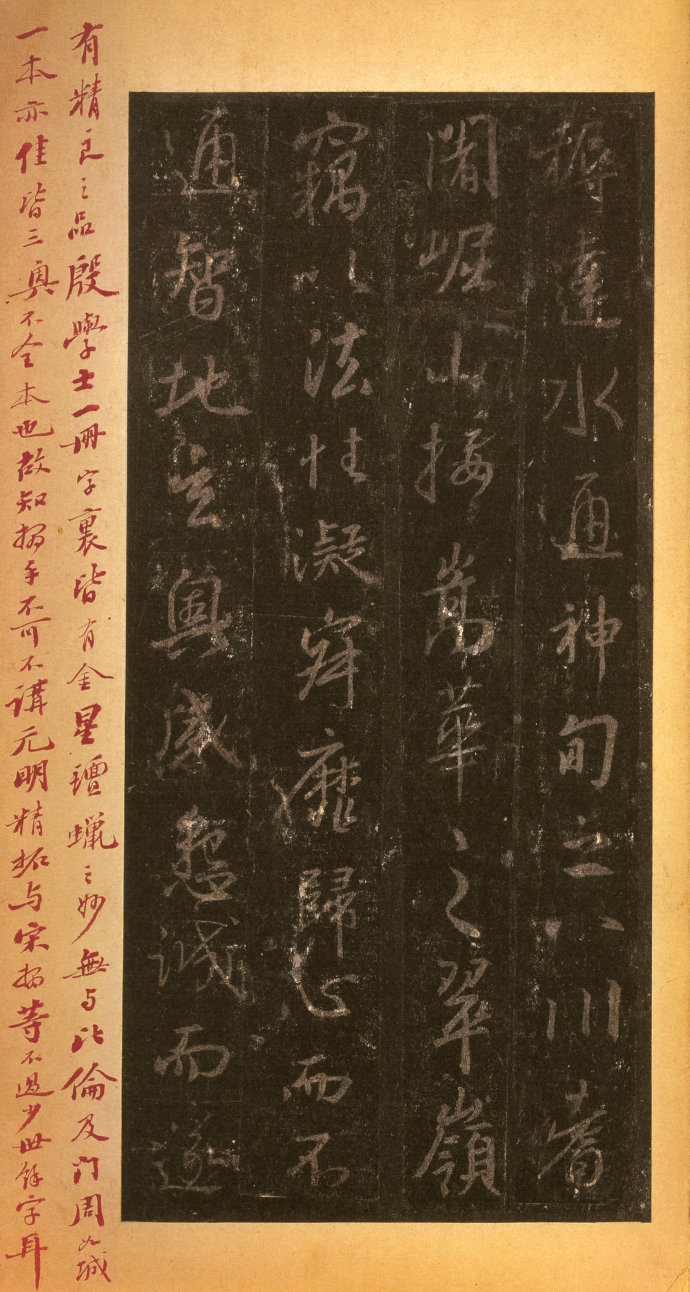 耨達水通神甸之八川耆
闍崛山接嵩華之翠嶺
竊以法性凝寂靡歸心而不
通智地玄奧感懇誠而遂
有精良之品殷學士一冊字裏皆有金星氊蠟之妙無与比倫及门周城
一本亦佳皆三奧不全本也故知搨手不可不講元明精拓与宋搨等不過少丗餘字耳